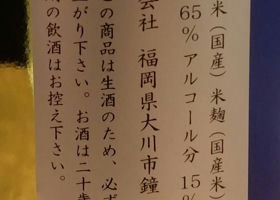 米（国産）米麹（国産米）
65％ アルコール分 15％
会社 福岡県大川市鐘
の商品は生酒のため、必ず
上がり下さい。お酒は二十歳
の飲酒はお控え下さい。